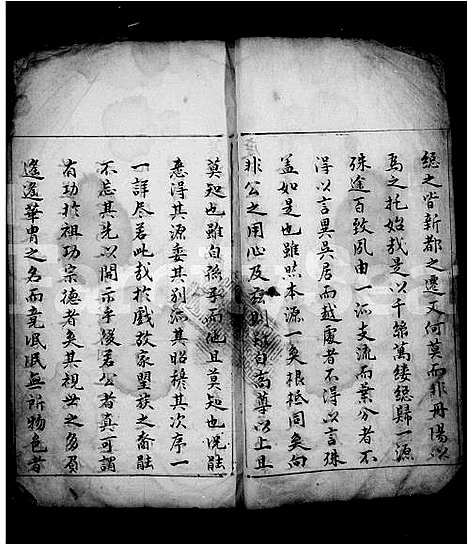 總之皆新都之遷又何莫而非丹陽以
為之托始哉是以千條萬縷總歸一源
殊途百致夙由一派支流而葉分者不
得以言異吳居而越處者不得以言殊
盖如是也雖然本源一矣根柢同矣向
非公之用心及玆則雖自高尊以上且
莫知也雖自孫子而他且莫知也況能
悉得其源委其別派其昭穆其次序一
一詳尽若此哉扵戲故家望族之裔能
不忘其先以開示乎後若公者真可謂
有功扵祖功宗德者矣其視世之多質
遙遙華胄之名而竟泯泯無所物色者